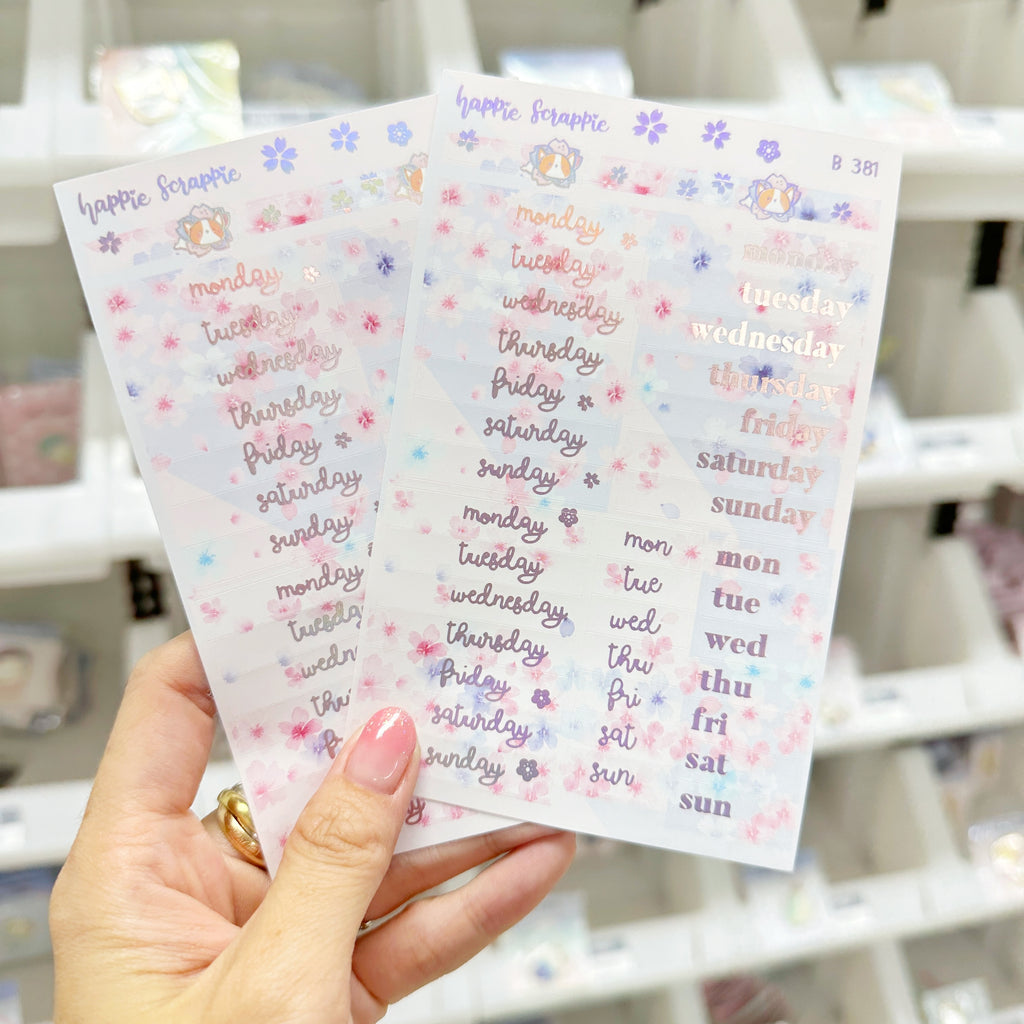 happie Scrappie
monday
tuesday
wednesday
thursday
friday
saturday
sunday
monday
tuesday
happie Scrappie
B 381
monday
tuesday
wednesday
thursday
friday
saturday
sunday
monday
tuesday
wednesday
thursday
friday
saturday
sunday
mon
tue
wed
thu
fri
sat
sun
monday
tuesday
wednesday
thursday
friday
saturday
sunday
mon
tue
wed
thu
fri
sat
sun